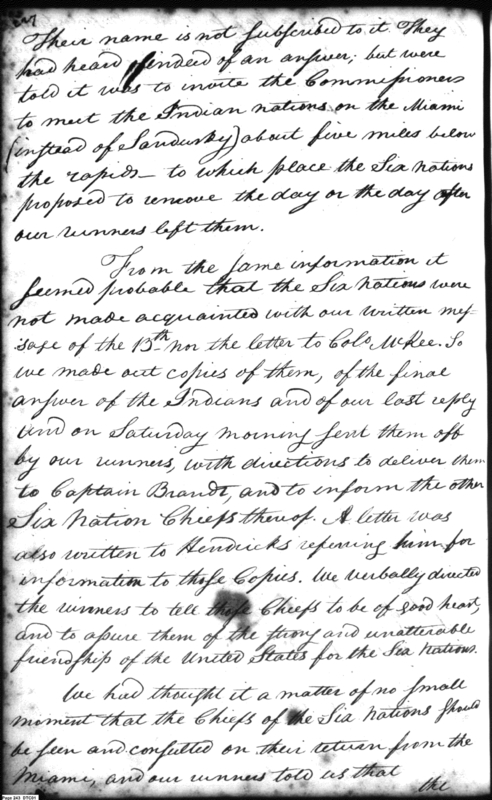 Their name is not subscribed to it. They
had heard indeed of an answer; but were
told it was to invite the Commissioners
to meet the Indian nations on the Miami
(instead of Sandusky) about five miles below
the rapids — to which place the Six Nations
proposed to remove the day or the day after
our runners left them.
From the same information it
seemed probable that the Six Nations were
not made acquainted with our written mes-
sage of the 13th nor the letter to Colo McKee. So
we made out copies of them, of the final
answer of the Indians and of our last reply
and on Saturday morning sent them off
by our runners, with directions to deliver them
to Captain Brandt, and to inform the other
Six Nation Chiefs thereof. A letter was
also written to Hendricks referring him for
information to those Copies. We verbally directed
the runners to tell those Chiefs to be of good heart,
and to assure them of the strong and unalterable
friendship of the United States for the Six Nations.
We had thought it a matter of no small
moment that the Chiefs of the Six Nations should
be seen and consulted on their return from the
Miami, and our runners told us that
the
Page 243 DTC01